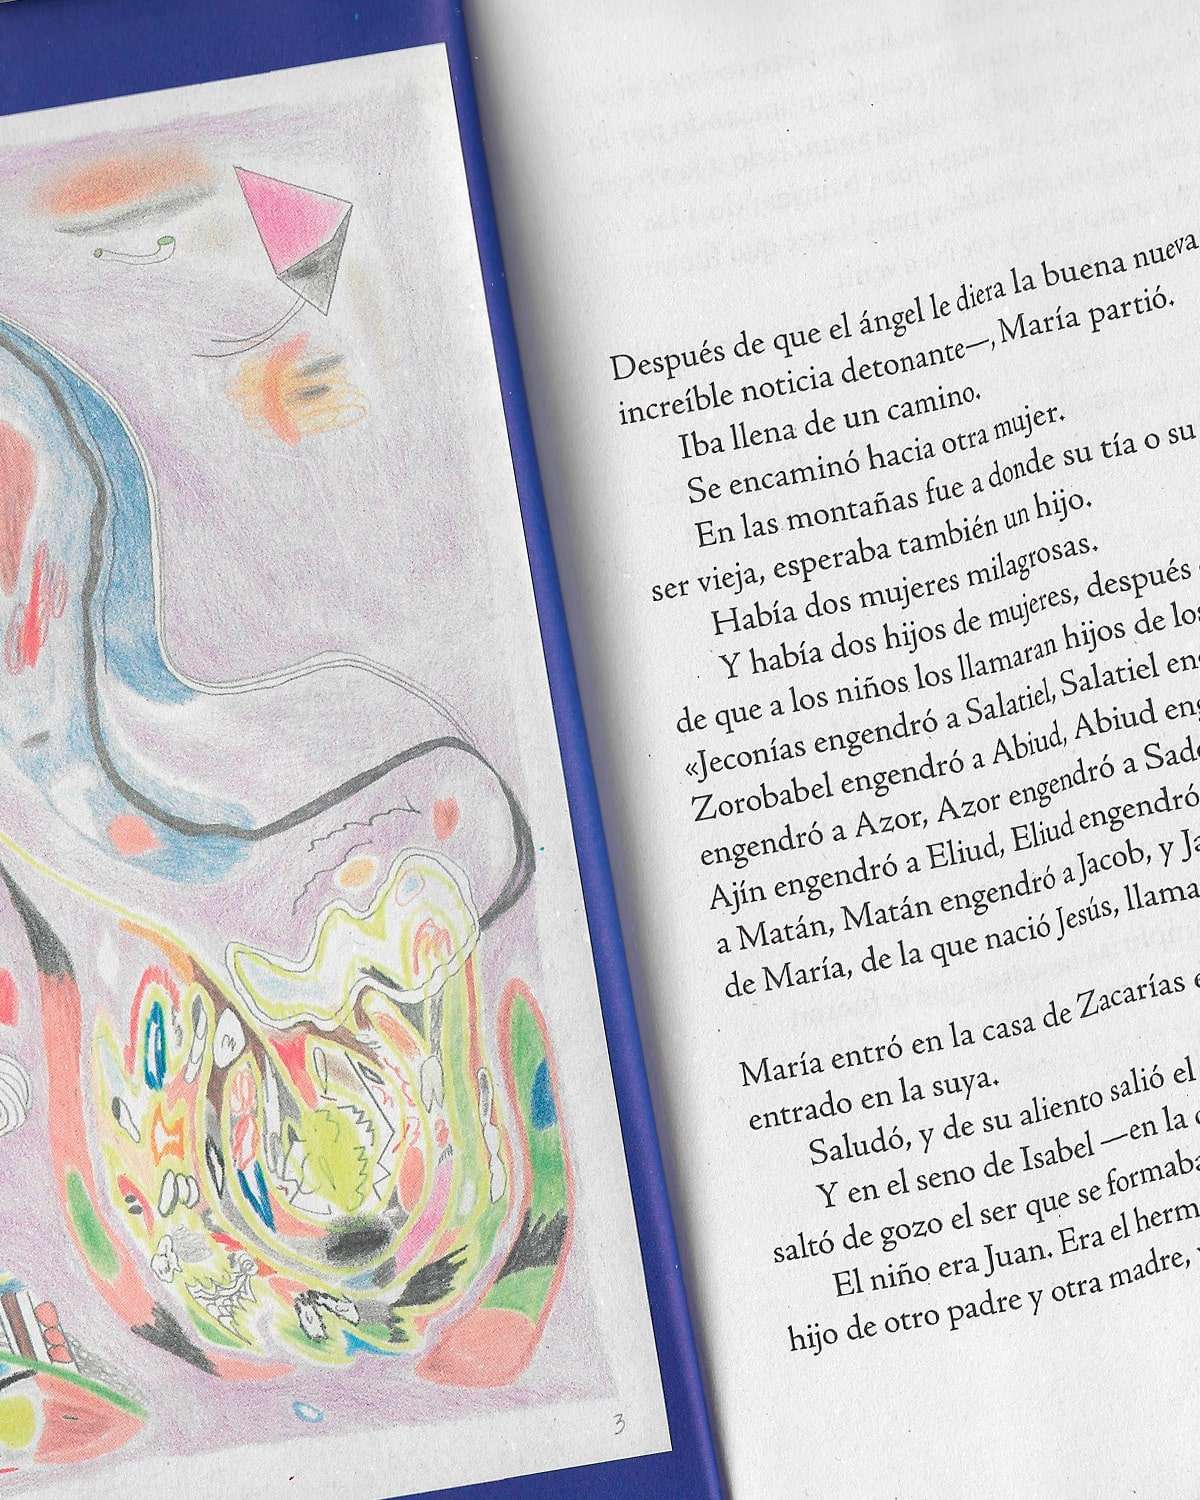 Después de que el ángel le diera la buena nueva
increíble noticia detonante—, María partió.
Iba llena de un camino.
Se encaminó hacia otra mujer.
En las montañas fue a donde su tía o su
ser vieja, esperaba también un hijo.
Había dos mujeres milagrosas.
Y había dos hijos de mujeres, después
de que a los niños los llamaran hijos de los
«Jeconías engendró a Salatiel, Salatiel
Zorobabel engendró a Abiud, Abiud
engendró a Azor, Azor engendró a
Ajín engendró a Eliud, Eliud engendró
a Matán, Matán engendró a Jacob, y
de María, de la que nació Jesús,
María entró en la casa de Zacarías
entrado en la suya.
Saludó, y de su aliento salió el
Y en el seno de Isabel —en la
saltó de gozo el ser que se formaba
El niño era Juan. Era el
hijo de otro padre y otra madre,
3